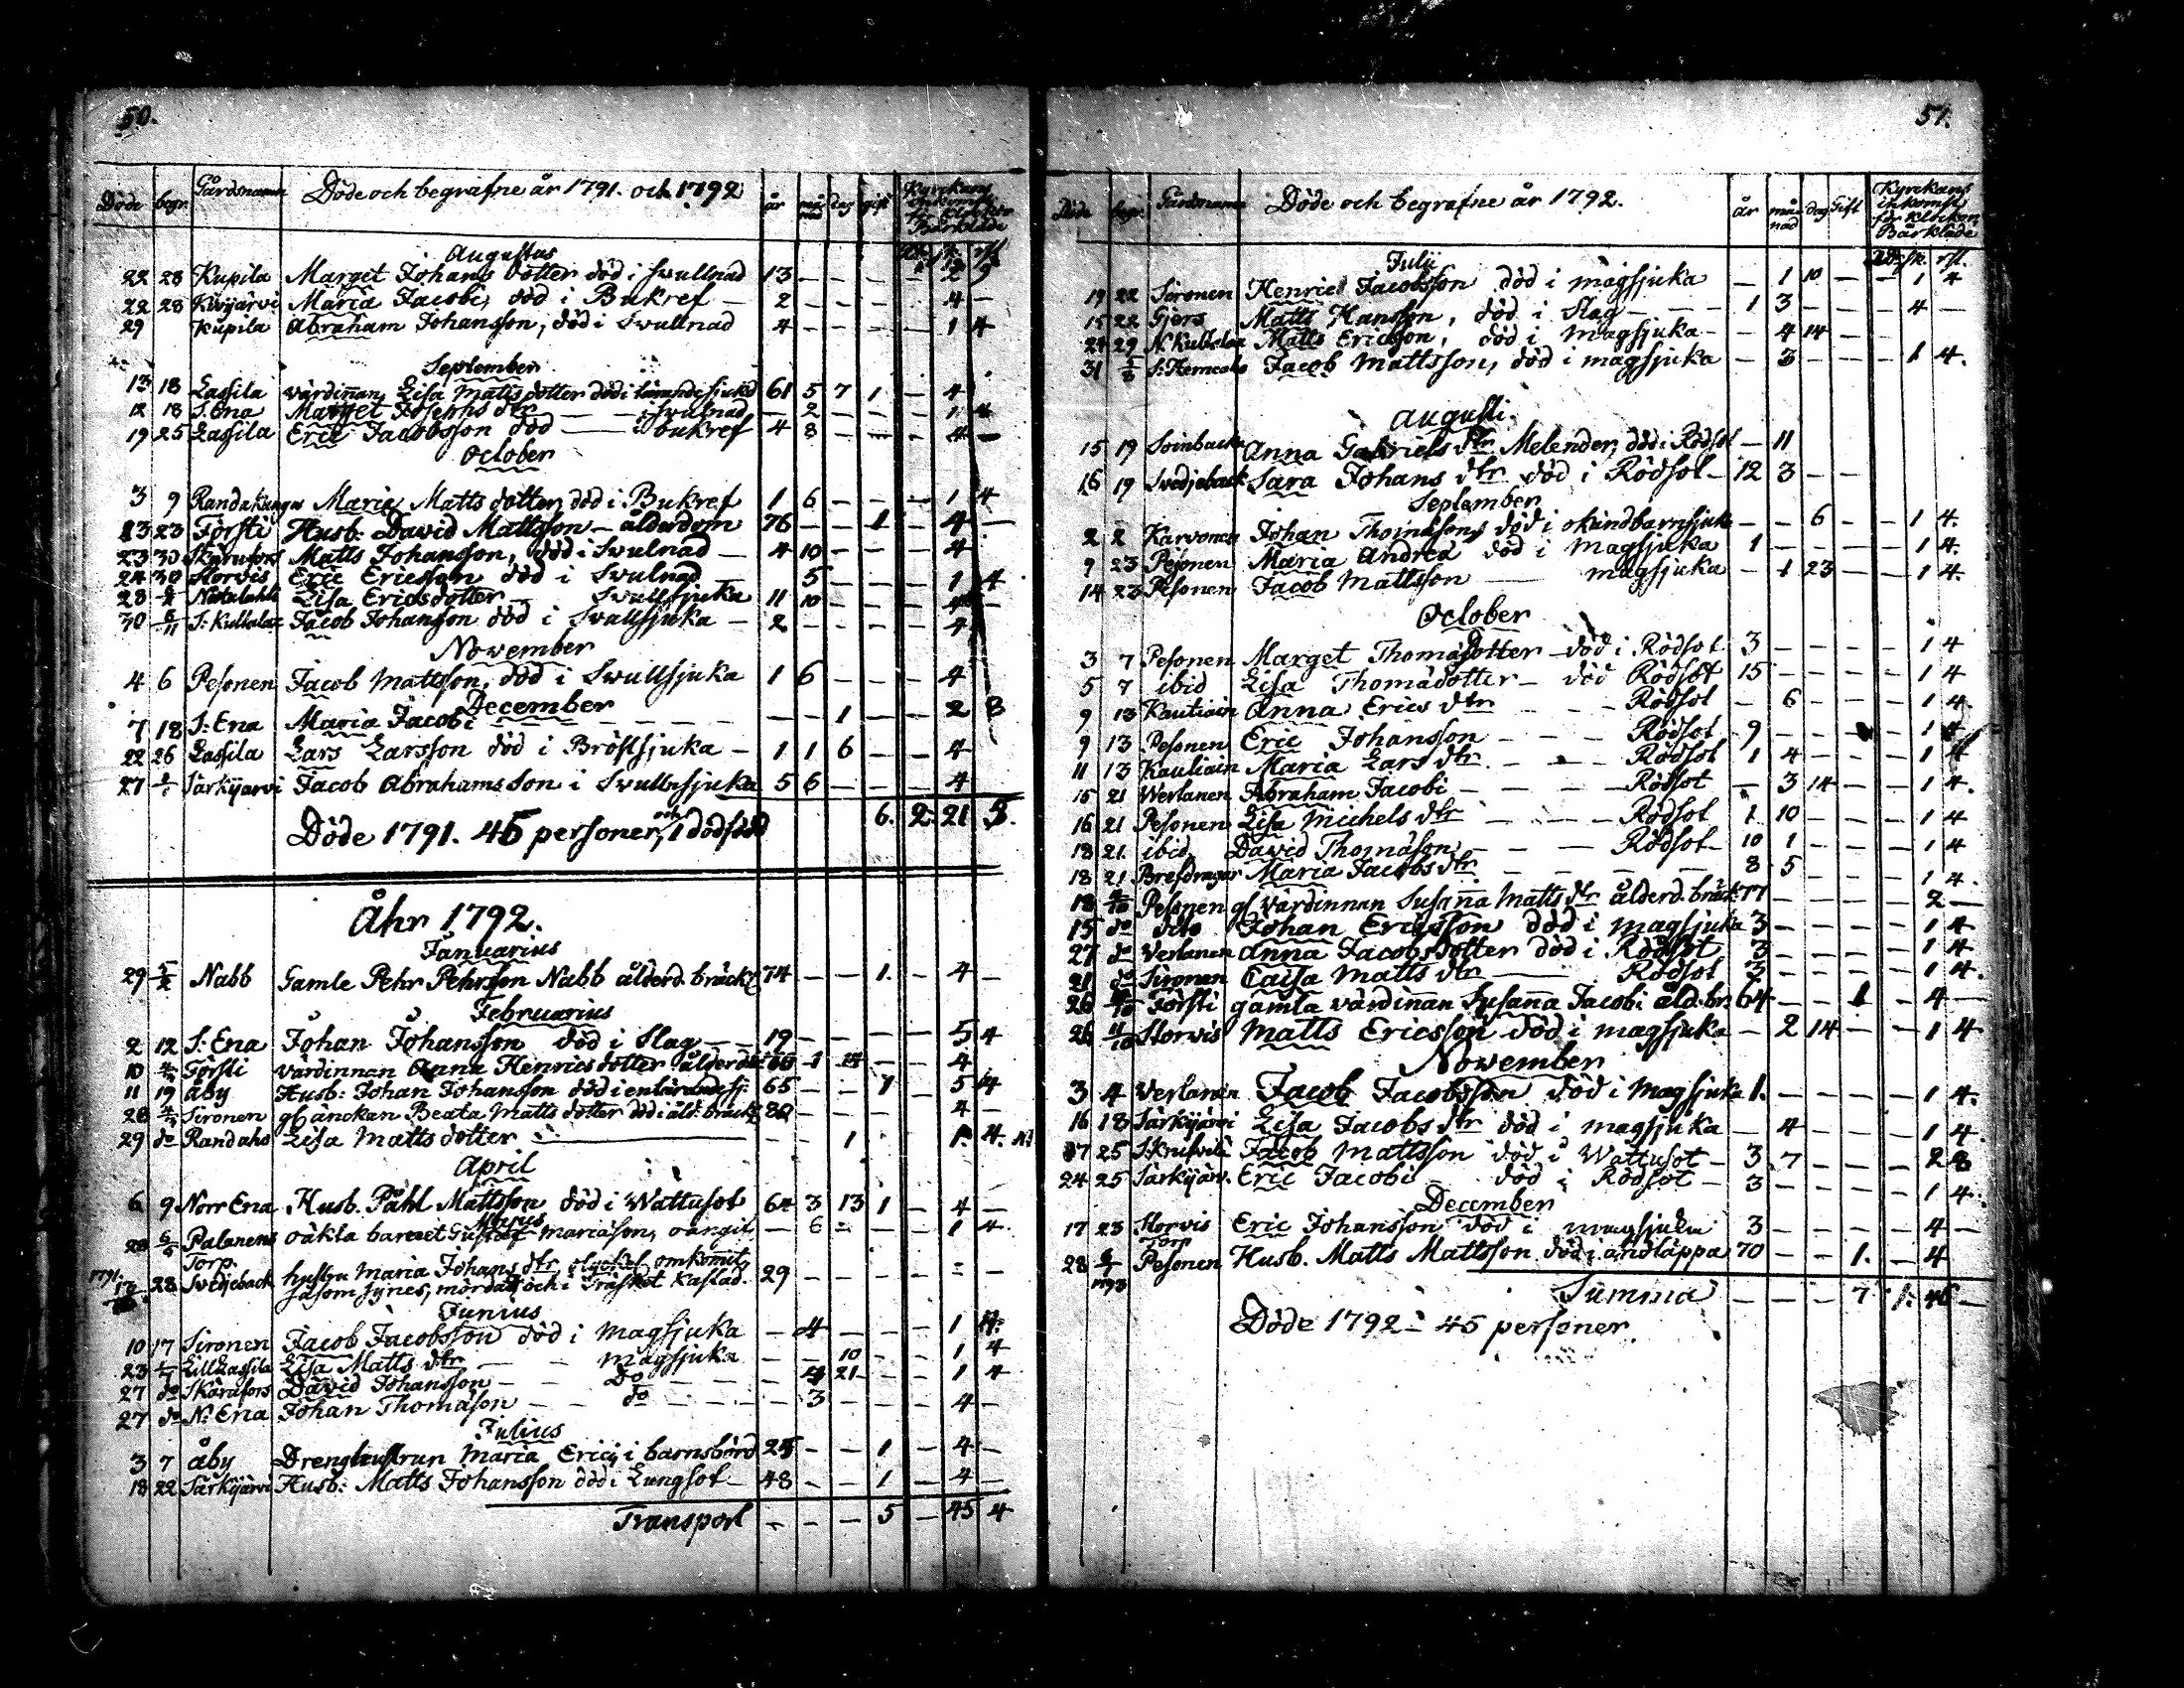 50.
Döde begr. Gårdsnamn Döde och begrafne år 1791. och 1792 år månad dag gift Kyrckans inkomst för Klockor Bårkläde
Augustus
22 28 Kupila Marget Johans dotter död i Svullnad 13 — — —
22 28 Kivijärvi Maria Jacobi, död i Bukref — 2 — — — — 4 —
29 Kupila Abraham Johansson, död i Svullnad 4 — — — — 1 4
September
13 18 Lassila värdinnan Lisa Matts dotter död i tärande sjukd 61 5 7 1 — 4 —
12 18 S. Ena Marget Josephs dtr — — i Svulnad — 2 — — — 1 4
19 25 Lassila Eric Jacobsson död — i bukref 4 8 — — — 4 —
October
3 9 Randakangas Maria Matts dotter, död i Bukref 1 6 — — — 1 4
13 23 Försti Husb: David Mattsson — ålderdom 76 — — 1 — 4 —
23 30 Skarufors Matts Johansson, död i Svulnad — 4 10 — — — 4
24 30 Storvis Eric Ericsson död i Svulnad — 5 — — — 1 4
28 Lisa Ericsdotter — Svullsjuka 11 10 — — — 4 —
30 6/11 S: Kullalax Jacob Johansson död i Svullsjuka — 2 — — — — 4
November
4 6 Pesonen Jacob Mattsson, död i Svullsjuka 1 6 — — — 4
December
7 18 S: Ena Maria Jacobi — — — — — — 1 — — 2 8
22 26 Lassila Lars Larsson död i Bröstsjuka — 1 1 6 — — 4
27 Särkijärvi Jacob Abrahamsson i Svullnsjuka 5 6 — — — 4
6. 2. 21 5.
Döde 1791. 45 personer, och 1 dödfödd
Åhr 1792.
Januarius
29 5/2 Nabb Gamle Pehr Pehrsson Nabb ålderd. bräckl 74 — — 1. — 4 —
Februarius
2 12 S: Ena Johan Johansson död i Slag — — 19 — — — — 5 4
10 Försti värdinnan Anna Henricsdotter ålderdom — — 4 —
11 19 åby Husb: Johan Johansson död i en tärande sj. 65 — — 1 5 4
28 4/3 Sironen gl änckan Beata Matts dotter död i åld: bräckl — — — 4 —
29 do Randahs Lisa Matts dotter — — — 1 1 4.
April
6 9 Norr Ena Husb. Påhl Mattsson död i Wattusot 64 3 13 1 — 4 —
Majus
28 6/5 Palanens Torp. oäkta barnet Gustaf Mariason, oangif. — 6 — — — 1 4.
1791. 28 Svedjeback hustru Maria Johans dtr olyckel. omkommit,
såsom synes, mördat och i Träsket kastad. 29 — — — — — —
Junius
10 17 Sironen Jacob Jacobsson död i magsjuka — 4 — — — 1 4.
23 1/7 Lill Lassila Lisa Matts dtr — — magsjuka — — 10 — — 1 4
27 do Skarafors David Johansson — — do — 4 21 — — 1 4
27 do N: Ena Johan Thomason — — do — 3 — — — 4 —
Julius
3 7 åby Drenghustrun Maria Erici, i barnsbörd — — 1 — 4 —
18 22 Särkijärvi Husb: Matts Johansson död i Lungsot — 48 — — 1 — 4 —
Transport — — — 5 — 45 4
51.
Döde begr. Gårdsnamn Döde och begrafne år 1792. år månad dag Gift Kyrckans inkomst för Klockor Bårkläde
Julii
19 22 Sironen Henric Jacobsson död i magsjuka — 1 10 — — 1 4
15 22 Gjers Matts Hansson, död i Slag — — 1 3 — — — 4 —
24 29 N. Kullalax Matts Ericsson, död i magsjuka — — 4 14 —
31 Jacob Mattsson, död i magsjuka — 3 — — — 1 4.
Augusti.
15 19 Soinbacka Anna Gabriels dtr Melender, död i Rödsot — 11
16 19 Svedjeback Sara Johans dtr död i Rödsot — 12 3 — —
September
2 2 Karvonen Johan Thomason, död i okändbarnsjuk — — 6 — — 1 4.
9 23 Pesonen Maria Andreæ död i magsjuka 1 — — — — 1 4.
14 23 Pesonen Jacob Mattsson — magsjuka — 1 23 — — 1 4.
October
3 7 Pesonen Marget Thomasdotter död i Rödsot 3 — — — — 1 4
5 7 ibid Lisa Thomadotter — död Rödsot 15 — — — — 1 4
9 13 Kautiain Anna Erics dtr — — Rödsot — 6 — — — 1 4.
9 13 Pesonen Eric Johansson — — — Rödsot 9 — — — — 1 4
11 13 Kautiain Maria Lars dtr — — — Rödsot 1 4 — — — 1 4
15 21 Werlanen Abraham Jacobi — — — — Rödsot — 3 14 — — 1 4.
16 21 Pesonen Lisa Michels dtr — — — Rödsot 1 10 — — — 1 4
18 21. ibid David Thomason — — — Rödsot — 10 1 — — — 1 4
18 21 Maria Jacobs dtr — — — — 8 5 — — — 1 4.
18 Pesonen gl värdinnan Susanna Matts dtr ålderd. bräck. 77 — — — — 2 —
15 do dito Johan Ericsson död i magsjuka 3 — — — — 1 4
27 do Verlanen Anna Jacobsdotter död i Rödsot 3 — — — — 1 4
21 do Sironen Caisa Matts dtr — Rödsot 3 — — — — 1 4.
26 Försti gamla värdinan Susanna Jacobi åld. br. 64 — — 1 — 4 —
26 Storvis Matts Ericsson död i magsjuka — 2 14 — — 1 4
November
3 4 Verlanen Jacob Jacobsson död i magsjuka 1. — — — — 1 4.
16 18 Särkijärvi Lisa Jacobs dtr död i magsjuka — 4 — — — 1 4.
17 25 Jacob Mattsson död i Wattusot — 3 7 — — — 2 8
24 25 Särkijärv. Eric Jacobi — död i Rödsot — 3 — — — — 1 4.
December
17 23 Storvis Torp Eric Johansson död i magsjuka 3 — — — — 4 —
28 1793 Pesonen Husb. Matts Mattsson död i andtäppa 70 — — 1. — 4
Summa — — — 7. 1: 45 —
Döde 1792 — 45 personer.